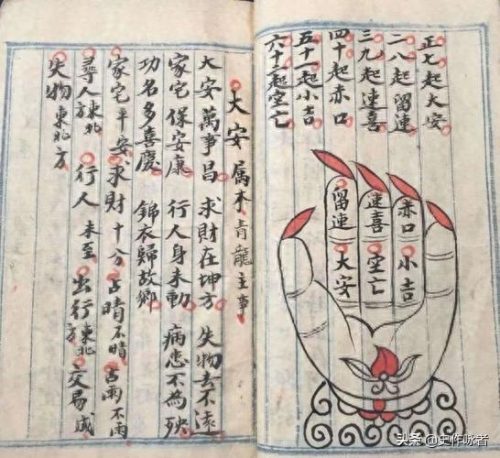 正七起大安
二八起留連
三九起速喜
四十起赤口
五十一起小吉
六十二起空亡
赤口 小吉
速喜 空亡
留連 大安
大安 属木 青龍主事
大安萬事昌 求財在坤方 失物去不遠
家宅保安康 行人身未動 病患不為殃
功名多喜慶 錦衣歸故鄉
家宅平安 求財十分 占晴不晴 占雨不雨
尋人東北方 行人未至 出行東北方 交易成
失物東北方
头条 @史作咏者